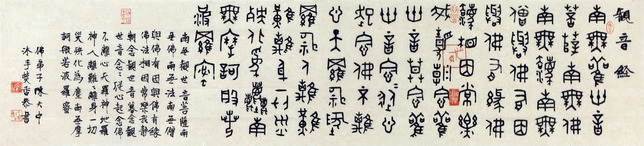 觀音經
南無觀世音
菩薩南無佛
南無法南無
僧與佛有因
與佛有緣佛
法相因常樂
我靜朝念觀
世音暮念觀
世音念念從
心起念佛不離
心天羅神地
羅神人離難
難離身一切
災殃化為塵南
無摩訶般若波
羅蜜
南無觀世音菩薩南
無佛南無法南無僧
與佛有因與佛有緣
佛法相因常樂我靜
朝念觀世音暮念觀
世音念念從心起念佛
不離心天羅神地羅
神人離難難離身一切
災殃化為塵南無摩
訶般若波羅蜜
佛弟子陳大中
沐手焚香恭書